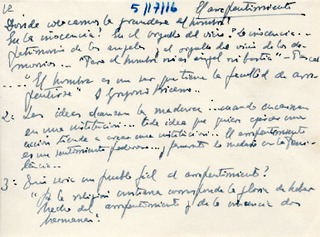 5/7/16 El arrepentimiento
Donde colocamos la grandeza del hombre?
En la inocencia? En el orgullo del vicio? La inocencia...
Patrimonio de los ángeles y el orgullo del vicio de los de-
monios... "Para el hombre ni es ángel ni bestia" - Pascal
.... "El hombre es un ser que tiene la facultad de arre-
pentirse"
2:- Las ideas alcanzan la madurez... cuando encarnan
en una institución... toda idea que quiera ejercer una
acción tiende a crear una institución... El arrepentimiento
es un sentimiento poderoso... y fermento la medra en la peni-
tencia...
3:- Qué sería un pueblo fiel al arrepentimiento?
"A la religión cristiana corresponde la gloria de haber
hecho del arrepentimiento y de la inocencia dos
hermanas!